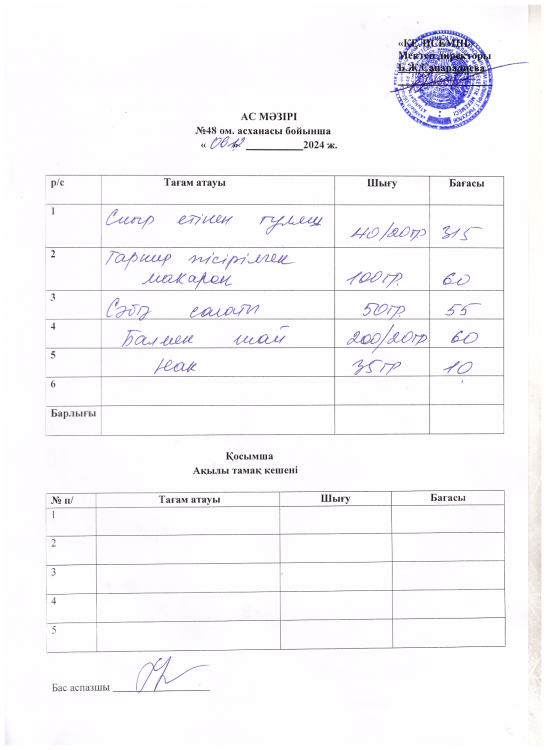 «КЕЛІСЕМІН»
Мектеп директоры
АС МӘЗІРІ
№48 ом. асханасы бойынша
« 2024 ж.
р/с Тағам атауы Шығу Бағасы
1 Сиыр етінен гуляш 40/20гр 315
2 Гарнир пісірілген
макарон 100гр. 60
3 Сәбіз салаты 50гр. 55
4 Балмен шай 200/20гр 60
5 Нан 35гр 10
6
Барлығы
Қосымша
Ақылы тамақ кешені
№ п/ Тағам атауы Шығу Бағасы
1
2
3
4
5
Бас аспазшы